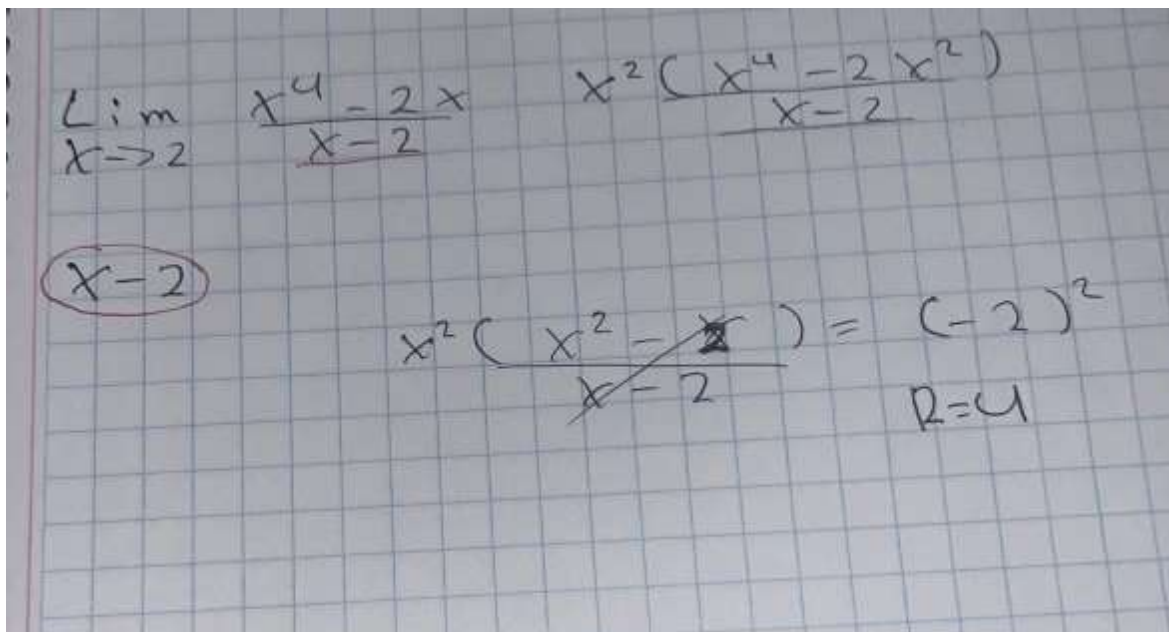 Lim x⁴ - 2x / x - 2    x² ( x⁴ - 2x² ) / x - 2
x -> 2
x - 2
x² ( x² - 2 ) / x - 2 = (-2)²
R = 4